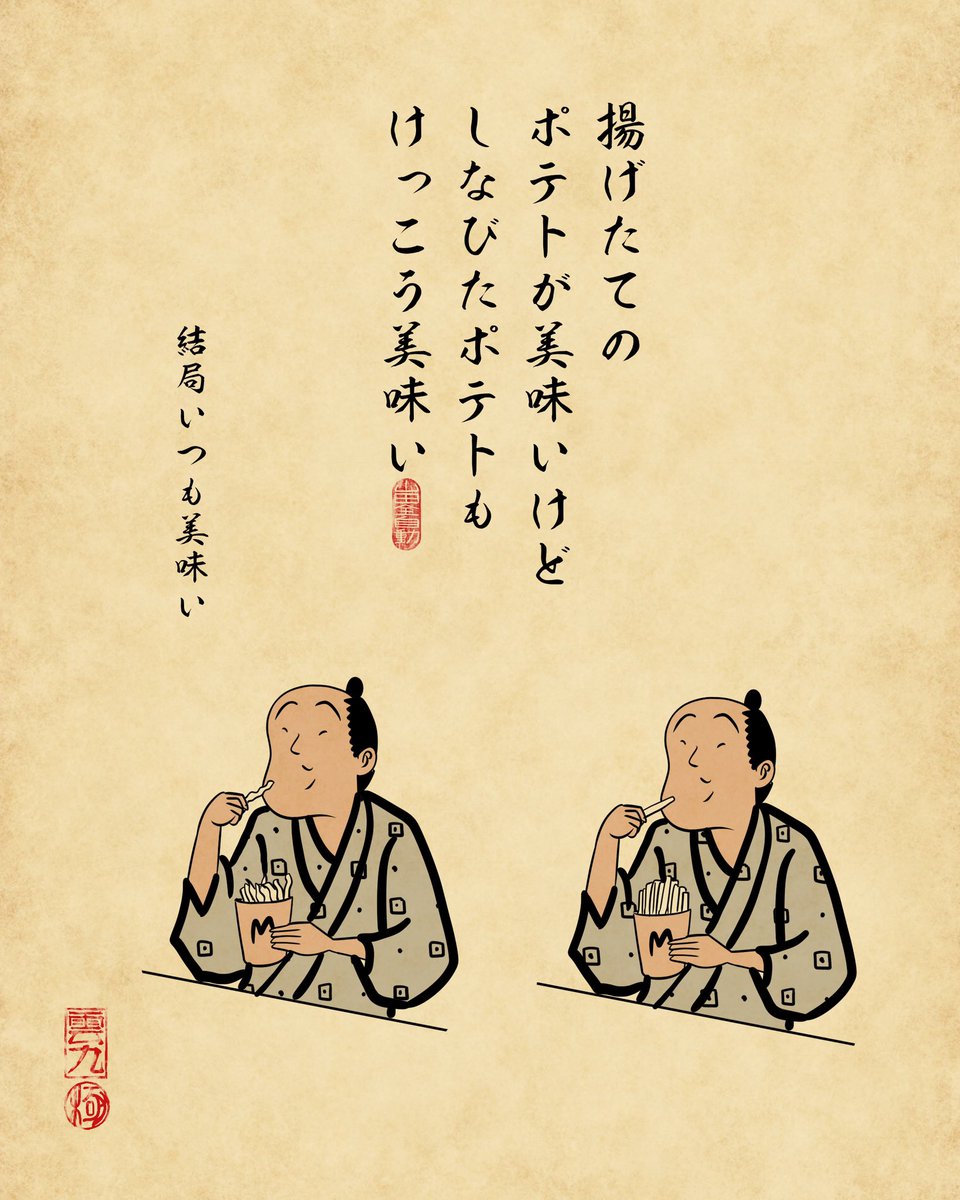 揚げたての
ポテトが美味いけど
しなびたポテトも
けっこう美味い
結局いつも美味い
M
M